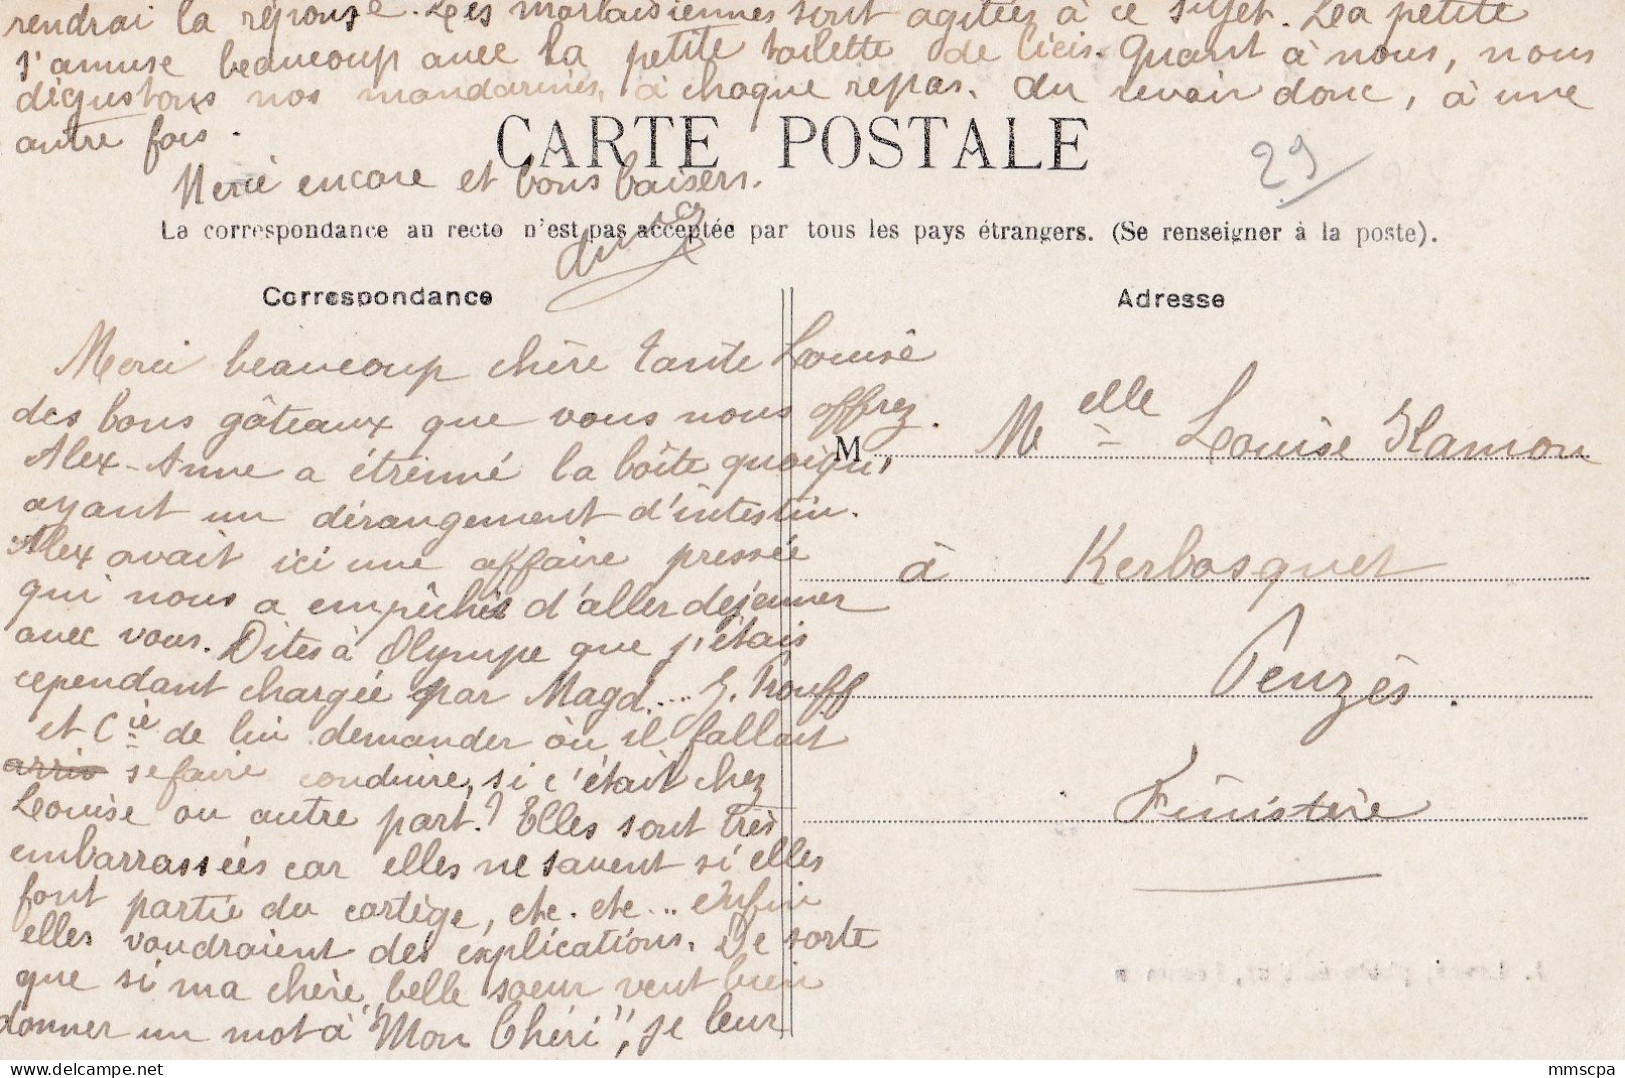 rendrai la réponse. Les morlaisiennes sont agitées à ce sujet. Léa petite
s'amuse beaucoup avec la petite toilette de Cicis. Quant à nous, nous
dégustons nos mandarines, à chaque repas. Au revoir donc, à une
autre fois.
CARTE POSTALE
29
Merci encore et bons baisers.
La correspondance au recto n'est pas acceptée par tous les pays étrangers. (Se renseigner à la poste).
Correspondance
Merci beaucoup chère tante Louise
des bons gâteaux que vous nous offrez.
Alex-Anne a étrenné la boîte quoiqu'
ayant un dérangement d'intestin.
Alex avait ici une affaire pressée
qui nous a empêchés d'aller déjeuner
avec vous. Dites à Olympe que j'étais
cependant chargée par Magd....
et Cie de lui demander où il fallait
se faire conduire, si c'était chez
Louise ou autre part? Elles sont très
embarrassées car elles ne savent si elles
font partie du cortège, etc. etc... enfin
elles voudraient des explications. De sorte
que si ma chère belle soeur veut bien
donner un mot à "Mon Chéri", je leur
Adresse
M Melle Louise Hamon
à Kerbosquet
Penzès.
Finistère
mmscpa